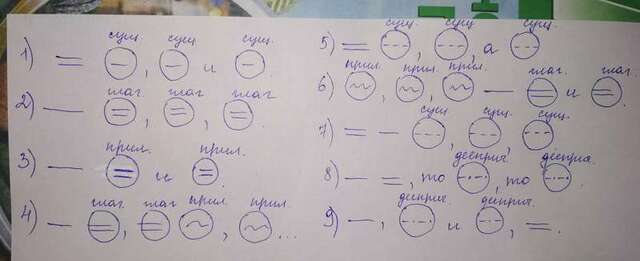 сущ. сущ. сущ.
1) = (–), (–) и (–).
глаг. глаг. глаг.
2) — (=), (=), (=).
прил. прил.
3) — (=) и (=).
глаг. глаг. прил. прил.
4) — (=), (=) (~), (~)...
сущ. сущ. сущ.
5) = (---), (---), а (---)
прил. прил. прил. глаг. глаг.
6) (~), (~), (~) — (=) и (=).
сущ. сущ. сущ.
7) = — (---), (---), (---)
дееприч. дееприч.
8) — =, то (-·-), то (-·-).
дееприч. дееприч.
9) —, (-·-) и (-·-), =.